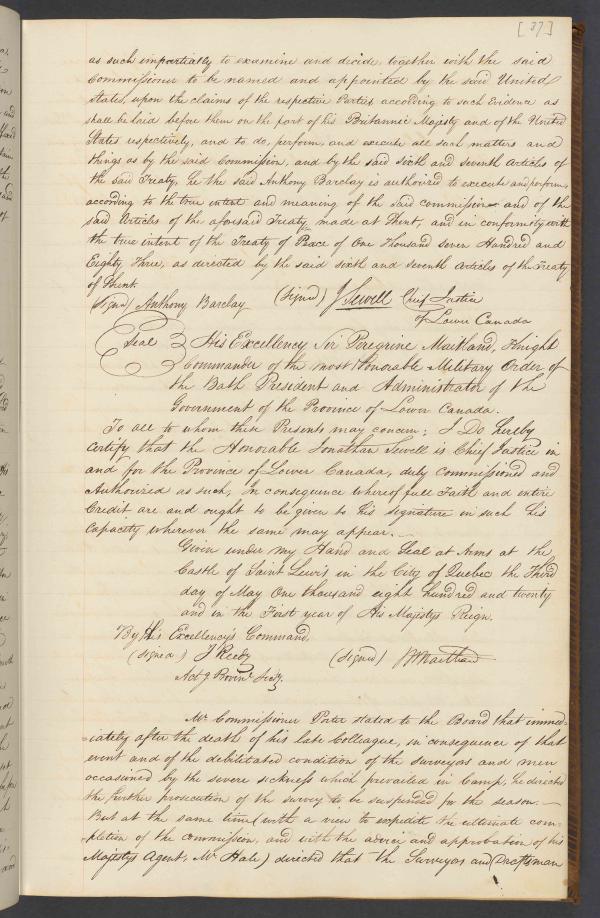 [37]
as such impartially to examine and decide, together with the said
Commissioner to be named and appointed by the said United
States, upon the claims of the respective Parties according to such Evidence as
shall be laid before them on the part of his Britannic Majesty and of the United
States respectively, and to do, perform, and execute all such matters and
things as by the said Commission, and by the said sixth and seventh articles of
the said Treaty, he the said Anthony Barclay is authorized to execute and perform,
according to the true intent and meaning of the said commission and of the
said Articles of the aforesaid Treaty made at Ghent, and in conformity with
the true intent of the Treaty of Peace of One Thousand seven Hundred and
Eighty Three, as directed by the said sixth and seventh articles of the Treaty
of Ghent.
(Signed) Anthony Barclay (Signed) J Sewell Chief Justice
of Lower Canada
Seal His Excellency Sir Peregrine Maitland, Knight
Commander of the most Honorable Military Order of
the Bath President and Administrator of the
Government of the Province of Lower Canada.
To all to whom these Presents may concern; I Do hereby
Certify that the Honorable Jonathan Sewell is Chief Justice in
and for the Province of Lower Canada, duly commissioned and
Authorized as such, In consequence whereof full Faith and entire
Credit are and ought to be given to his signature in such his
Capacity wherever the same may appear.
Given under my Hand and Seal at Arms at the
Castle of Saint Lewis in the City of Quebec the Third
day of May One thousand eight hundred and twenty
and in the First year of His Majestys Reign.
By His Excellency's Command
(Signed) J Ready (Signed) P Maitland
Actg Provinl Secy.
Mr Commissioner Porter stated to the Board that immed-
-iately after the death of his late Colleague, in consequence of that
event and of the debilitated condition of the surveyors and men
occasioned by the severe sickness which prevailed in Camp, he directed
the further prosecution of the survey to be suspended for the season.—
But at the same time (with a view to expedite the ultimate com-
pletion of the commission, and with the advice and approbation of his
Majestys Agent, Mr Hale) directed that the Surveyors and Draftsman